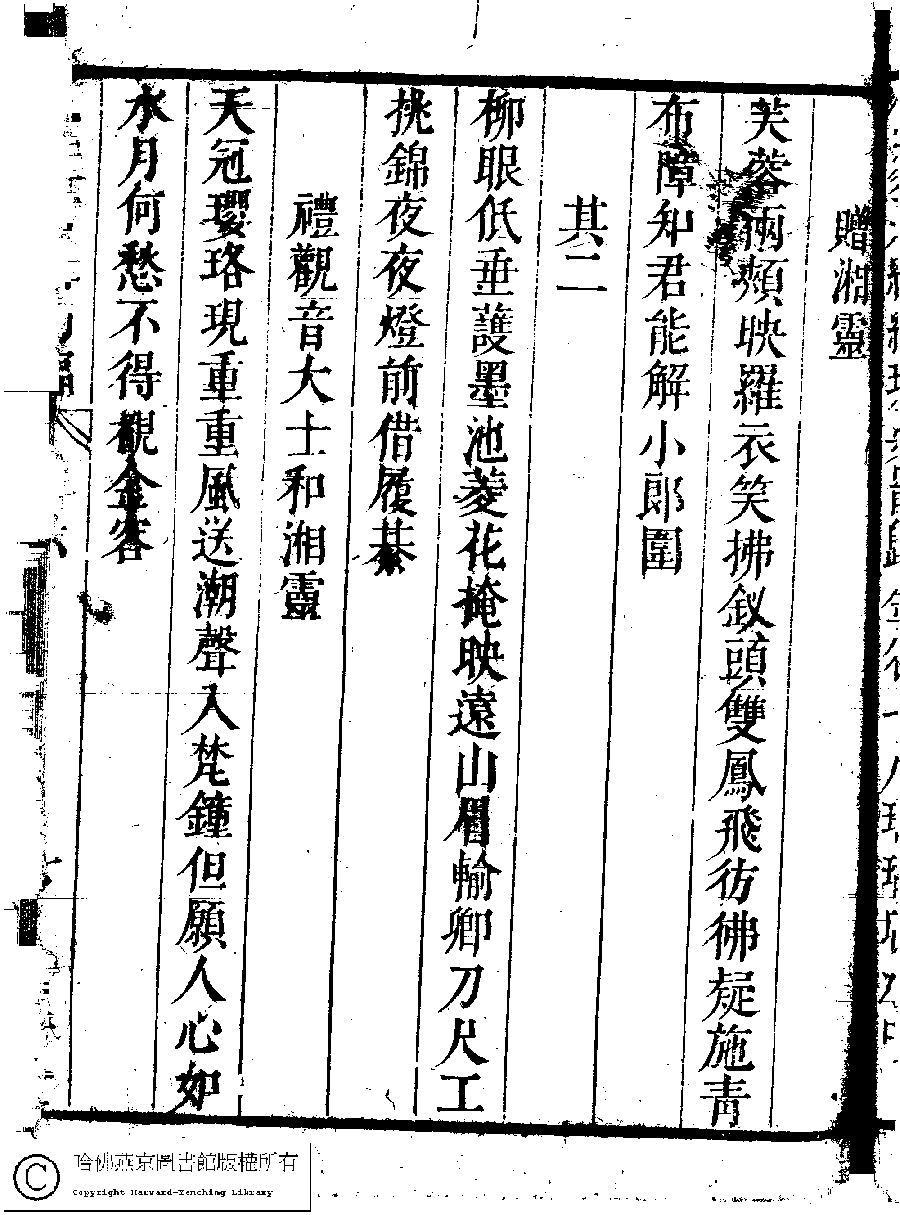 贈湘靈
芙蓉兩頰映羅衣笑拂釵頭雙鳳飛彷彿疑施青
布障知君能解小郎圍
其二
柳眼低垂護墨池菱花掩映遠山眉輸卿刀尺工
挑錦夜夜燈前借履綦
禮觀音大士和湘靈
天冠瓔珞現重重風送潮聲入梵鐘但願人心如
水月何愁不得覩金容
哈佛燕京圖書館版權所有
Copyright Harvard-Yenching Library